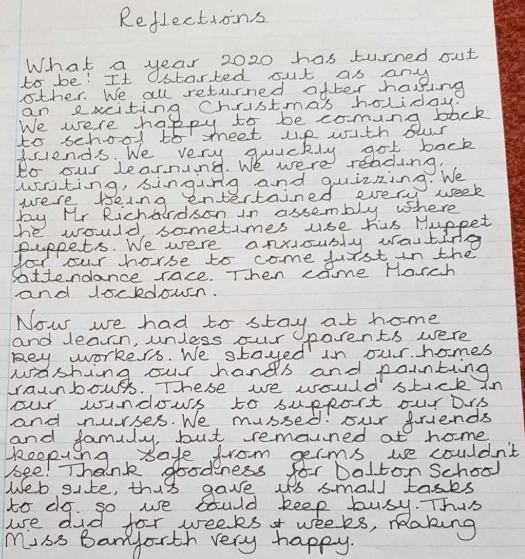 Reflections
What a year 2020 has turned out
to be! It started out as any
other. We all returned after having
an exciting Christmas holiday.
We were happy to be coming back
to school to meet up with our
friends. We very quickly got back
to our learning. We were reading,
writing, singing and quizzing. We
were being entertained every week
by Mr Richardson in assembly where
he would, sometimes use his Muppet
puppets. We were anxiously waiting
for our horse to come first in the
attendance race. Then came March
and lockdown.
Now we had to stay at home
and learn, unless our parents were
key workers. We stayed in our homes
washing our hands and painting
rainbows. These we would stick in
our windows to support our Drs
and nurses. We missed our friends
and family, but remained at home
keeping safe from germs we couldn't
see! Thank goodness for Dalton School
web site, this gave us small tasks
to do so we could keep busy. This
we did for weeks & weeks, making
Miss Bamforth very happy.